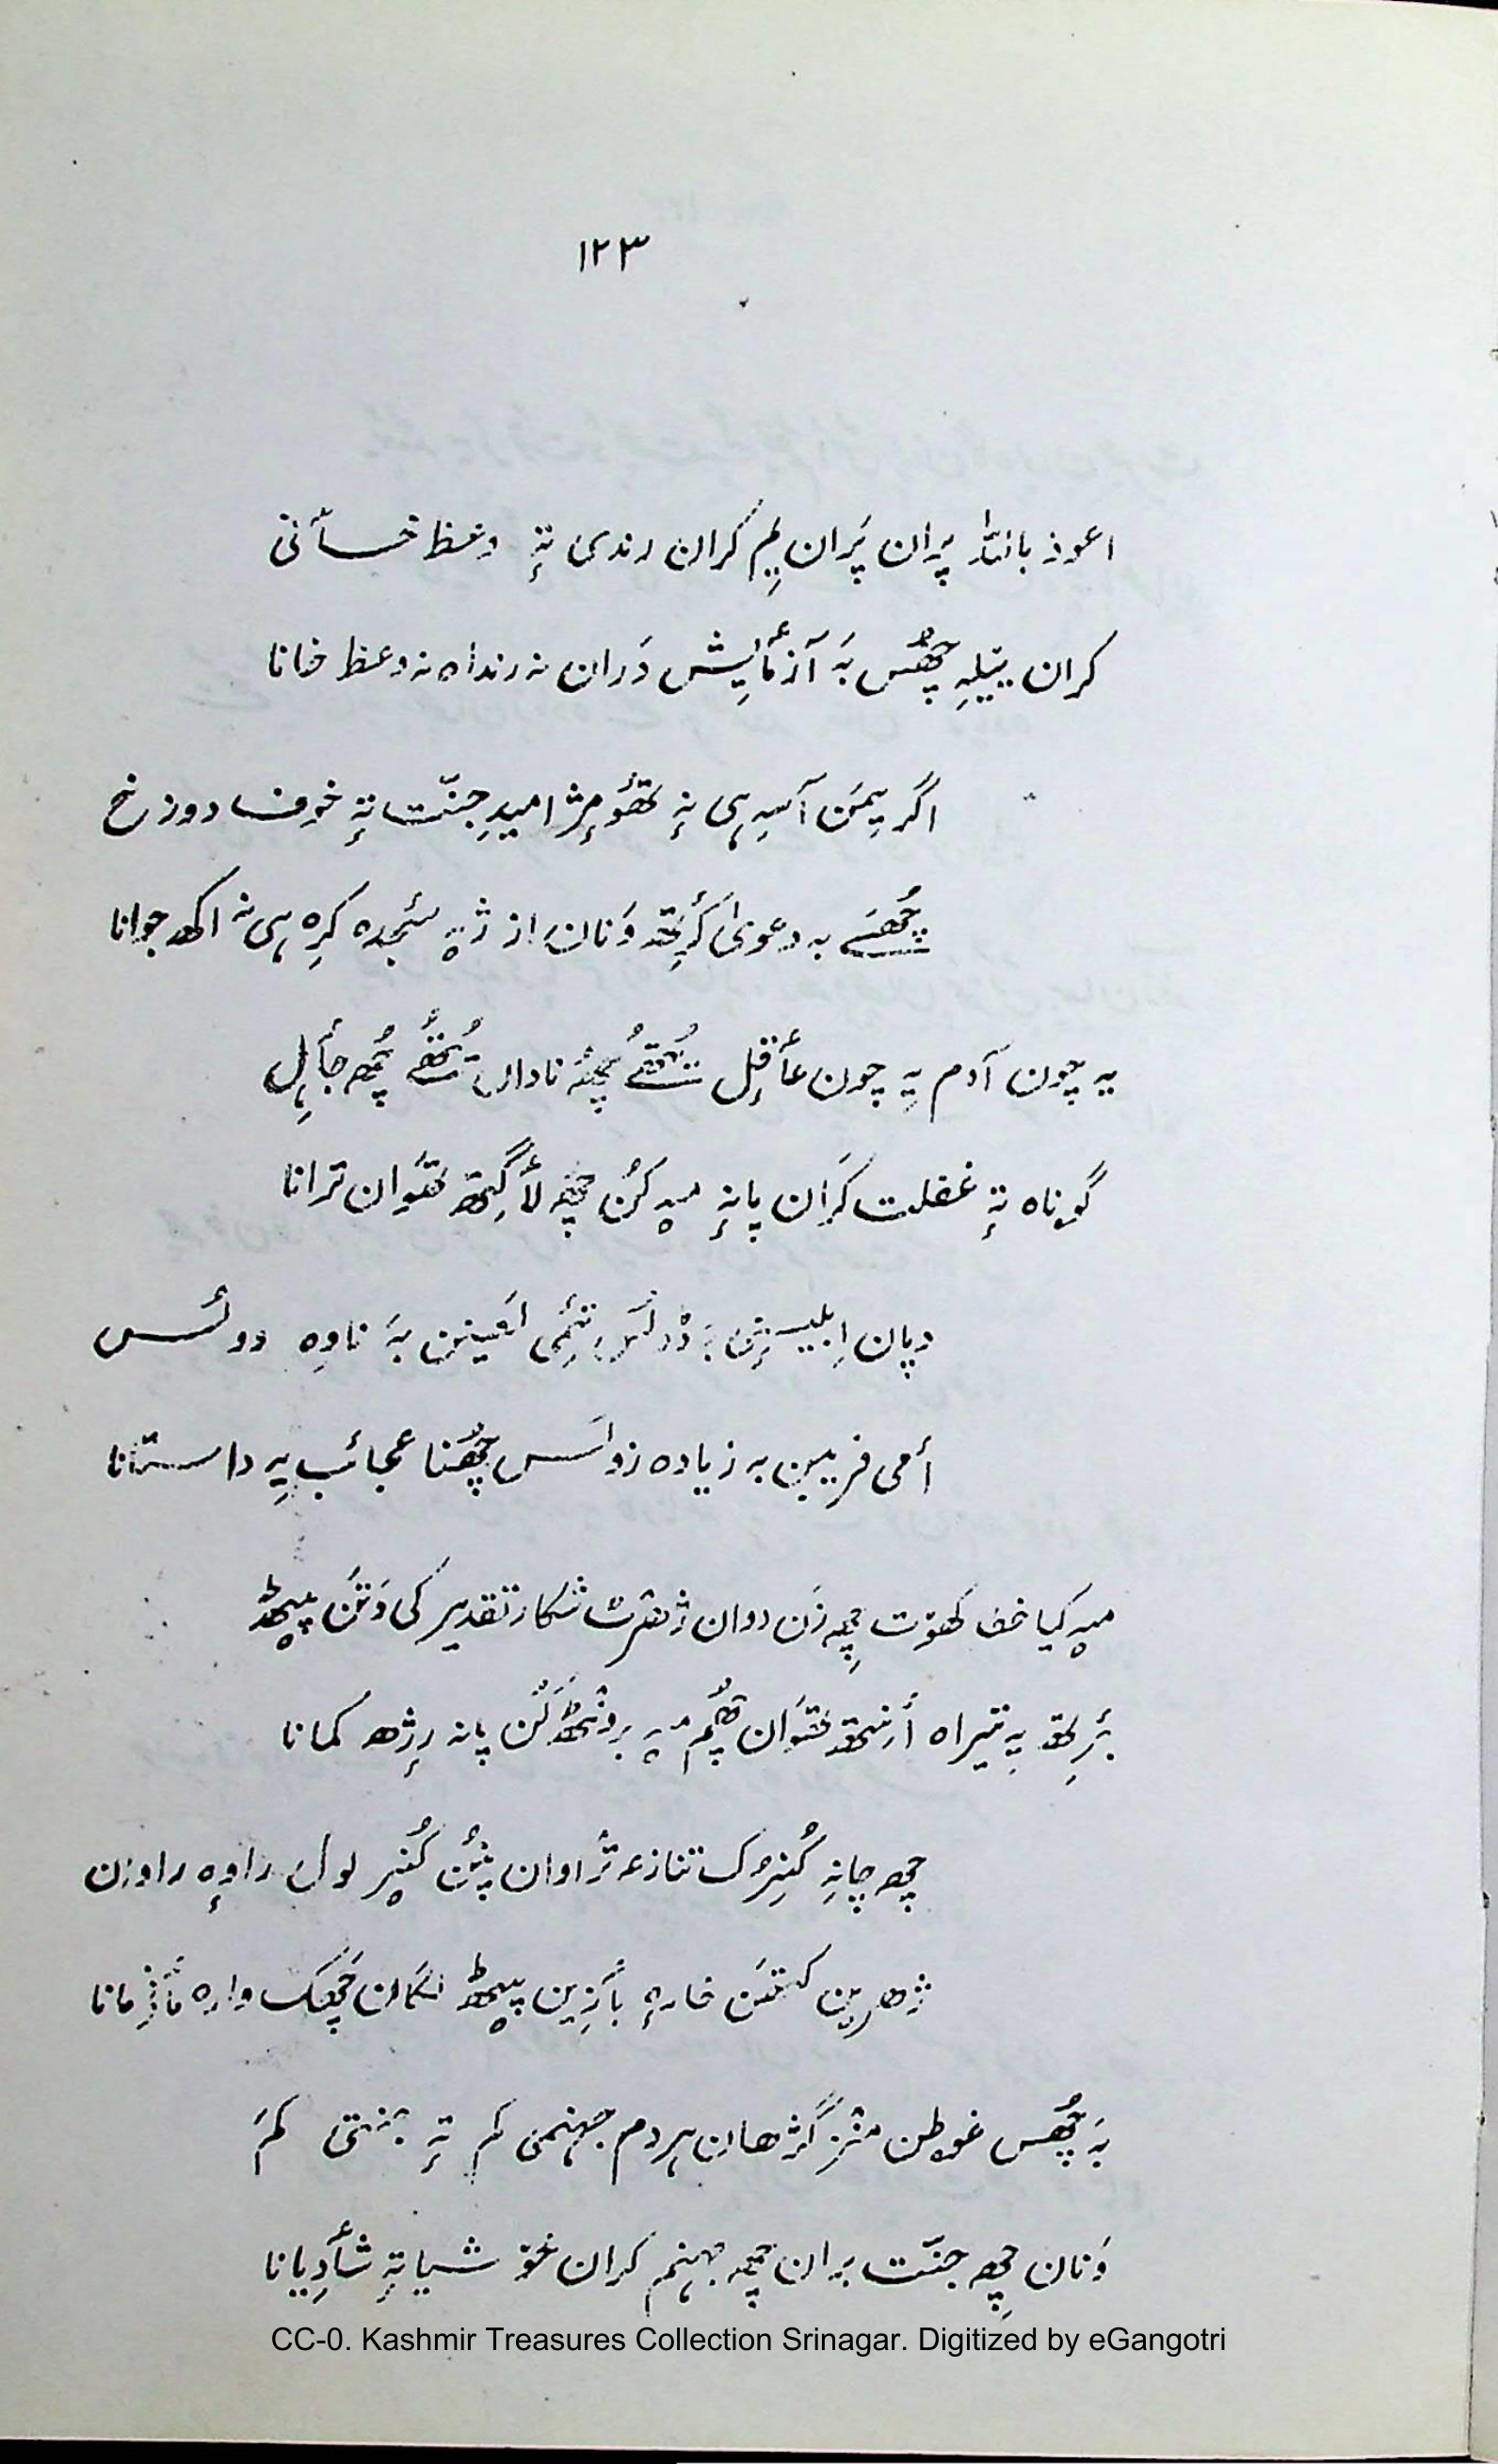 ۱۲۳
اعوذ باللہ پران پَران یِم کران رندی تہٕ وعظ خسٲنی
کران ییٚلہِ چھُس بہَ آزمٲیِش دَران نہ رنداہ نہ وعظ خانا
اگر یِمَن آسہِ ہی نہٕ تھٔومٕژ امیدِ جنّت تہٕ خوف دوزخ
چھُسَے بہ دعویٰ کٔرِتھ وَنان از ژےٚ سَجدہ کرِہ ہی نہ اکھ جوانا
یہ چون آدم یہِ چون عٲقِل یُتھُے چھُے نادان تِتھُے چھُ جٲہِل
گوناہ تہٕ غفلت کَران پانہٕ میہ کُن چھِ لٲگِتھ تھَوان ترانا
دپان اِبلیسٕن بہَ تٔمی لعینن بہَ ناوِہ دولُس
أمی فریبن بہ زیادہ زولَس چھُنا عجائب یہِ داستانا
میہ کیا خطا کھوٚت چھِ زَن دوان ژھرٕتھ شکار تقدیر کی وَتَن پیٹھ
بٔرِتھ یہِ تیراہ أنِتھ تھَوان چھُم میہ برونٛٹھ کَن پانہ رٕژھ کمانا
چھِ چانہِ کُنِرُک تنازعہ تراوان پَنُن کُنیر لول راوہٕ راوَن
ژھرین کتھَن خارہٕ بٲزِین پیٹھ لگان چھُک وارہ مٲزمانا
بہَ چھُس غوطن منٛز گژھان ہردم جہنمی کم تہٕ جنتی کَم
وَنان چھِ جنّت بران چھِ جہنم کران خوشیا تہٕ شٲدِیانا
CC-0. Kashmir Treasures Collection Srinagar. Digitized by eGangotri